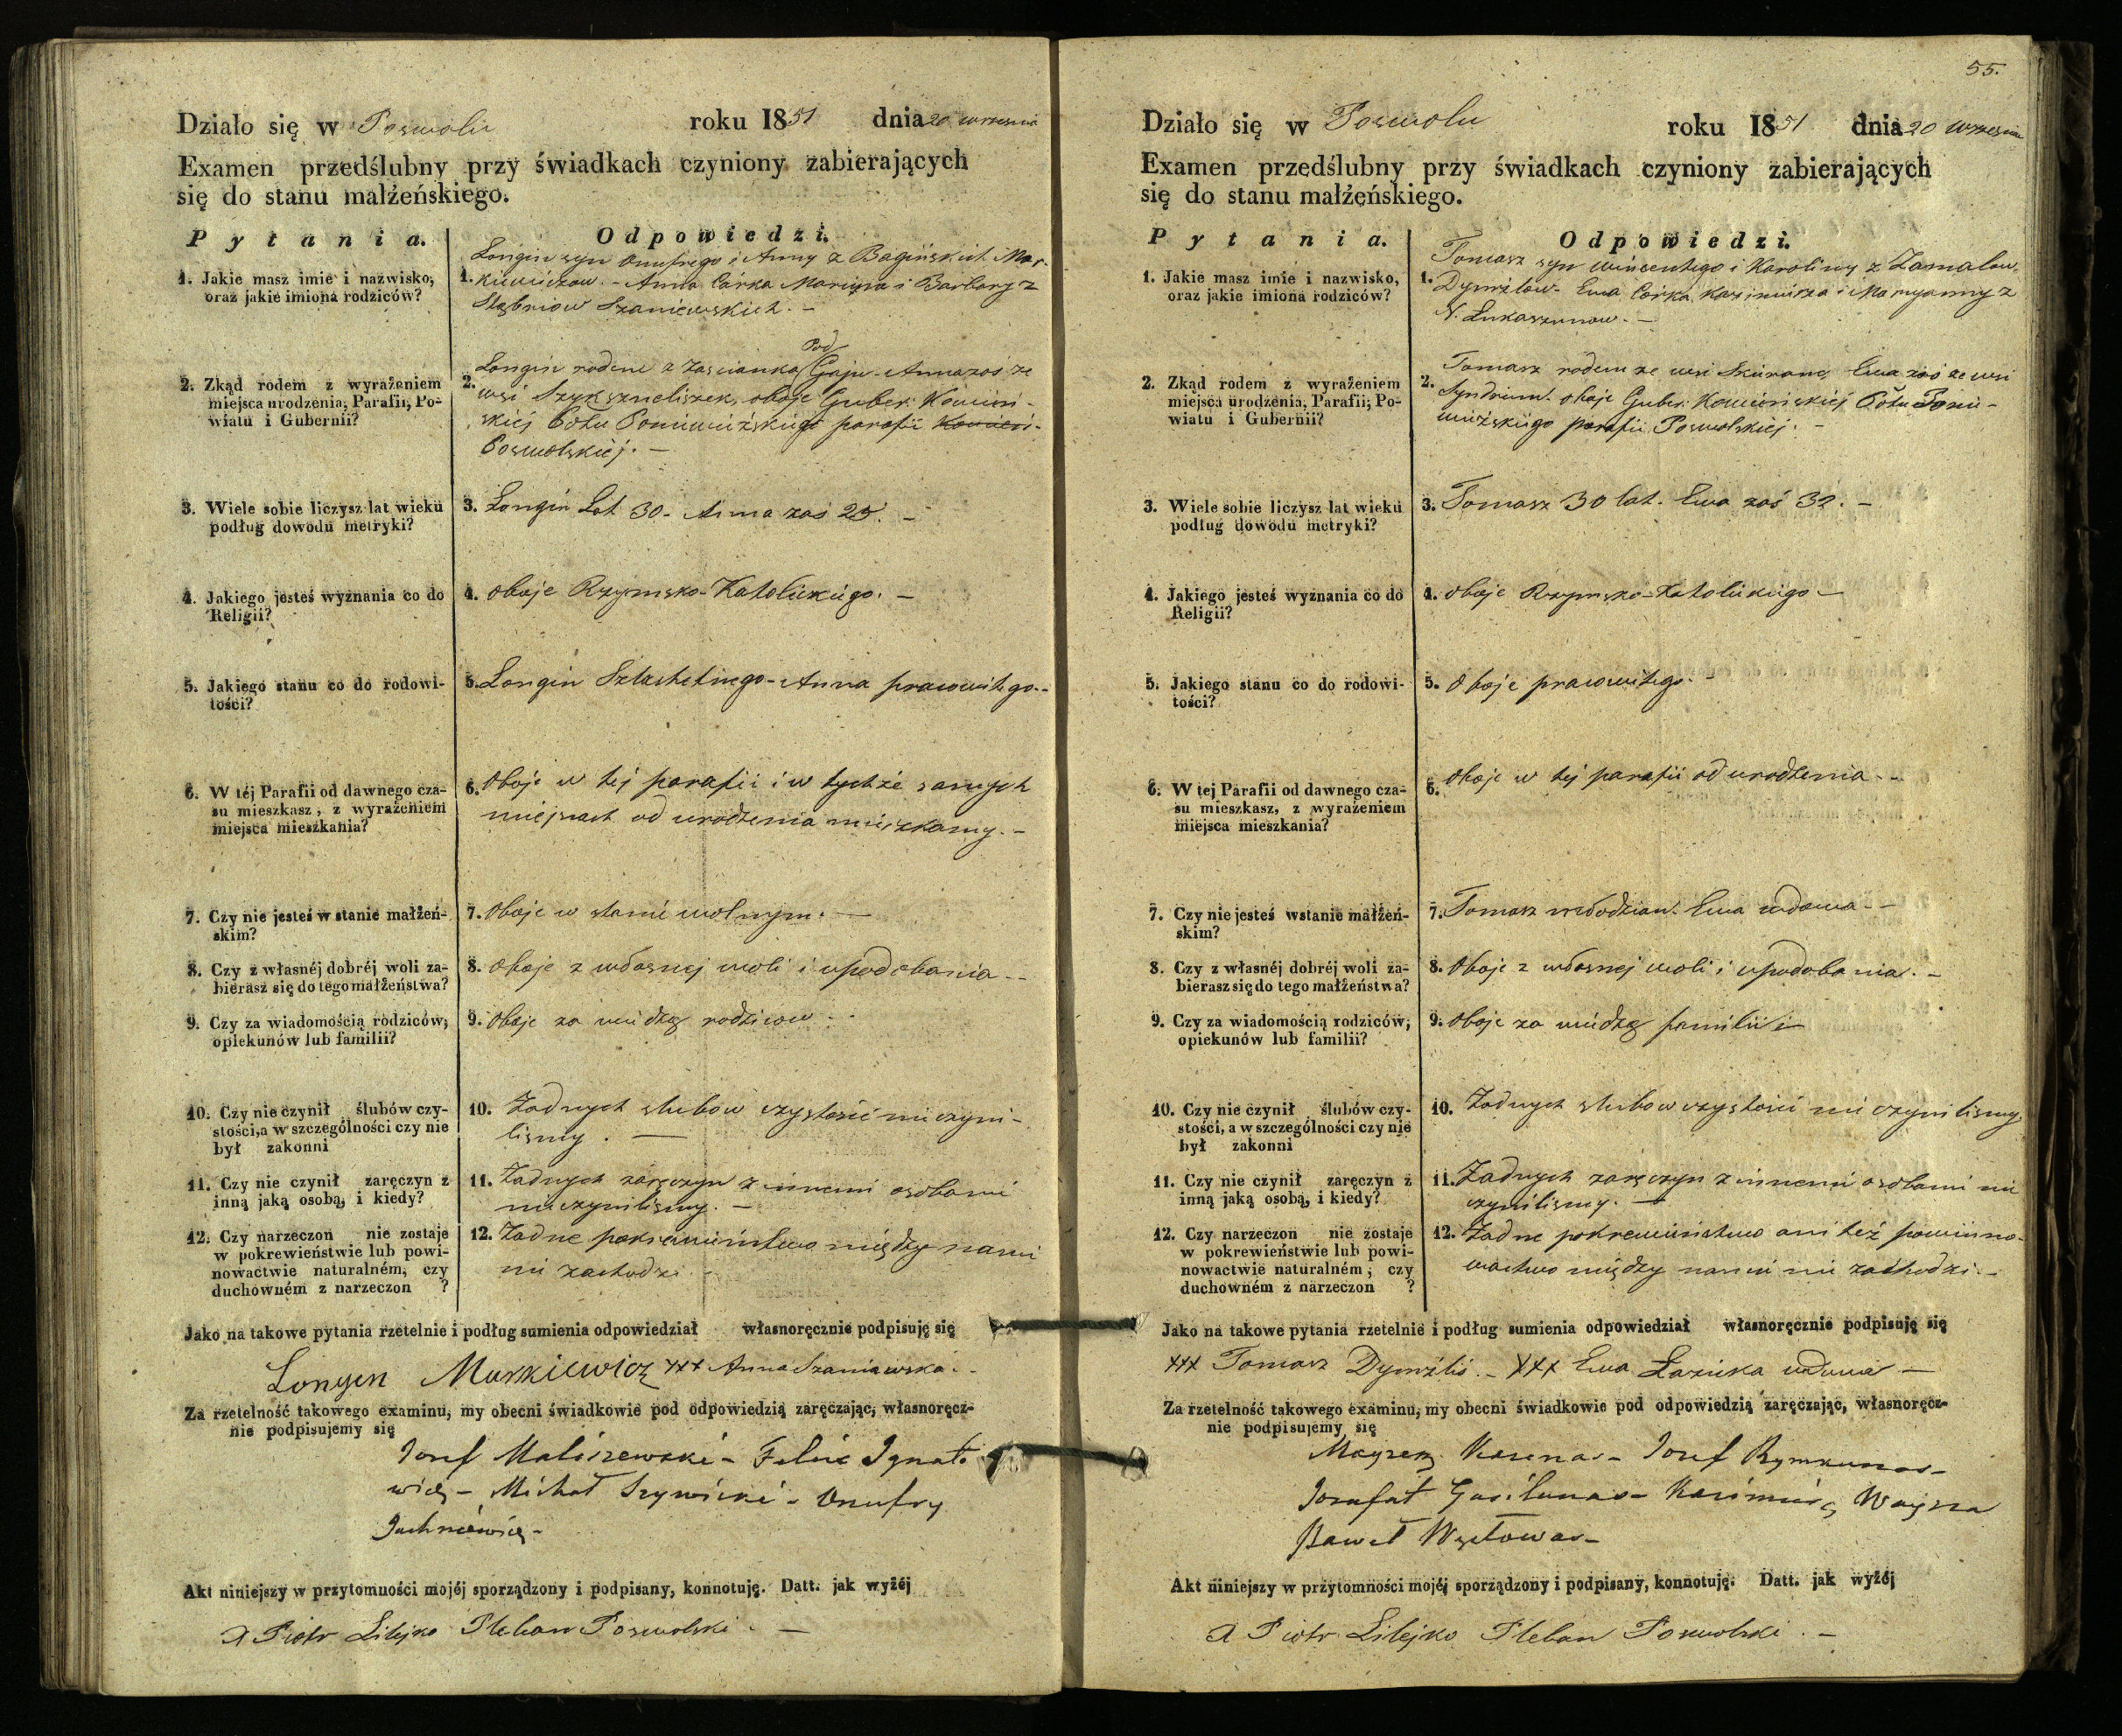 Działo się w Poswolu roku 1851 dnia 20 września
Examen przedślubny przy świadkach czyniony zabierających
się do stanu małżeńskiego.
Pytania. Odpowiedzi.
1. Jakie masz imie i nazwisko,
oraz jakie imiona rodziców?
1. Longin syn Onufrego i Anny z Bagińskich Mar-
kiewiczow. - Anna Córka Maricyna i Barbary z
Szaniewskich. -
2. Zkąd rodem z wyrażeniem
miejsca urodzenia, Parafii, Po-
wiatu i Gubernii?
2. Longin rodem z Zascianka Pod Gaju - Anna zaś ze
wsi Szykszneliszek, oboje Guber: Kowień-
skiéj Pottu Poniewiéżskiego parafii Kowień-
Poswolskiéj. -
3. Wiele sobie liczysz lat wieku
podług dowodu metryki?
3. Longin Lat 30 - Anna zaś 25. -
4. Jakiego jesteś wyznania co do
Religii?
4. oboje Rzymsko-Katolickiego. -
5. Jakiego stanu co do rodowi-
tości?
5. Longin Szlachetnego - Anna pracowitego. -
6. W téj Parafii od dawnego cza-
su mieszkasz, z wyrażeniem
miejsca mieszkania?
6. Oboje w tej parafii i w tychże samych
miejscach od urodzenia mieszkamy. -
7. Czy nie jesteś w stanie małżeń-
skim?
7. Oboje w stanie wolnym. -
8. Czy z własnéj dobréj woli za-
bierasz się do tego małżeństwa?
8. Oboje z własnej woli i upodobania -
9. Czy za wiadomością rodziców,
opiekunów lub familii?
9. Oboje za wiedzą rodzicow -
10. Czy nie czynił ślubów czy-
stości, a w szczególności czy nie
był zakonni
10. Żadnych slubow czystosci nie czyni-
lismy. -
11. Czy nie czynił zaręczyn z
inną jaką osobą, i kiedy?
11. Żadnych zaręczyn z innemi osobami
nie czynilismy. -
12. Czy narzeczon nie zostaje
w pokrewieństwie lub powi-
nowactwie naturalném, czy
duchowném z narzeczon ?
12. Żadne pokrewieństwo między nami
nie zachodzi -
Jako na takowe pytania rzetelnie i podług sumienia odpowiedział własnoręcznie podpisuję się
Longin Markiewicz xxx Anna Szaniawska. -
Za rzetelność takowego examinu, my obecni świadkowie pod odpowiedzią zaręczając, własnoręcz-
nie podpisujemy się
Josef Maliszewski - Felix Ignato
wicz - Michał Szywicki - Onufry
Juchniewicz -
Akt niniejszy w przytomności mojéj sporządzony i podpisany, konnotuję. Datt. jak wyżéj
X Piotr Lilejko Pleban Poswolski. -
55.
Działo się w Poswolu roku 1851 dnia 20 września
Examen przedślubny przy świadkach czyniony zabierających
się do stanu małżeńskiego.
Pytania. Odpowiedzi.
1. Jakie masz imie i nazwisko,
oraz jakie imiona rodziców?
1. Tomasz syn Wincentego i Karoliny z Zamalow
Dymżlow - Ewa Córka Kazimierza i Maryanny z
N. Łukaszunow. -
2. Zkąd rodem z wyrażeniem
miejsca urodzenia, Parafii, Po-
wiatu i Gubernii?
2. Tomasz rodem ze wsi Ewa zaś ze wsi
oboje Guber: Kowieńskiéj Pottu Ponie-
wiéżskiego parafii Poswolskiéj. -
3. Wiele sobie liczysz lat wieku
podług dowodu metryki?
3. Tomasz 30 lat. Ewa zaś 32. -
4. Jakiego jesteś wyznania co do
Religii?
4. oboje Rzymsko-Katolickiego -
5. Jakiego stanu co do rodowi-
tości?
5. Oboje pracowitego. -
6. W téj Parafii od dawnego cza-
su mieszkasz, z wyrażeniem
miejsca mieszkania?
6. Oboje w tej parafii od urodzenia. -
7. Czy nie jesteś wstanie małżeń-
skim?
7. Tomasz młodzian. Ewa wdowa. -
8. Czy z własnéj dobréj woli za-
bierasz się do tego małżeństwa?
8. Oboje z własnej woli i upodobania. -
9. Czy za wiadomością rodziców,
opiekunów lub familii?
9. Oboje za wiedzą familii -
10. Czy nie czynił ślubów czy-
stości, a w szczególności czy nie
był zakonni
10. Żadnych slubow czystosci nie czynilismy.
11. Czy nie czynił zaręczyn z
inną jaką osobą, i kiedy?
11. Żadnych zaręczyn z innemi osobami nie
czynilismy. -
12. Czy narzeczon nie zostaje
w pokrewieństwie lub powi-
nowactwie naturalném, czy
duchowném z narzeczon ?
12. Żadne pokrewieństwo ani też powinno-
wactwo między nami nie zachodzi. -
Jako na takowe pytania rzetelnie i podług sumienia odpowiedział własnoręcznie podpisuję się
xxx Tomasz Dymżlis. - xxx Ewa Łazicka wdowa -
Za rzetelność takowego examinu, my obecni świadkowie pod odpowiedzią zaręczając, własnoręcz-
nie podpisujemy się
Karenas - Josef Rymkunas -
Jozafat Gasilunas - Kazimierz Wayzra
Paweł Węstowas -
Akt niniejszy w przytomności mojéj sporządzony i podpisany, konnotuję. Datt. jak wyżéj
X Piotr Lilejko Pleban Poswolski. -